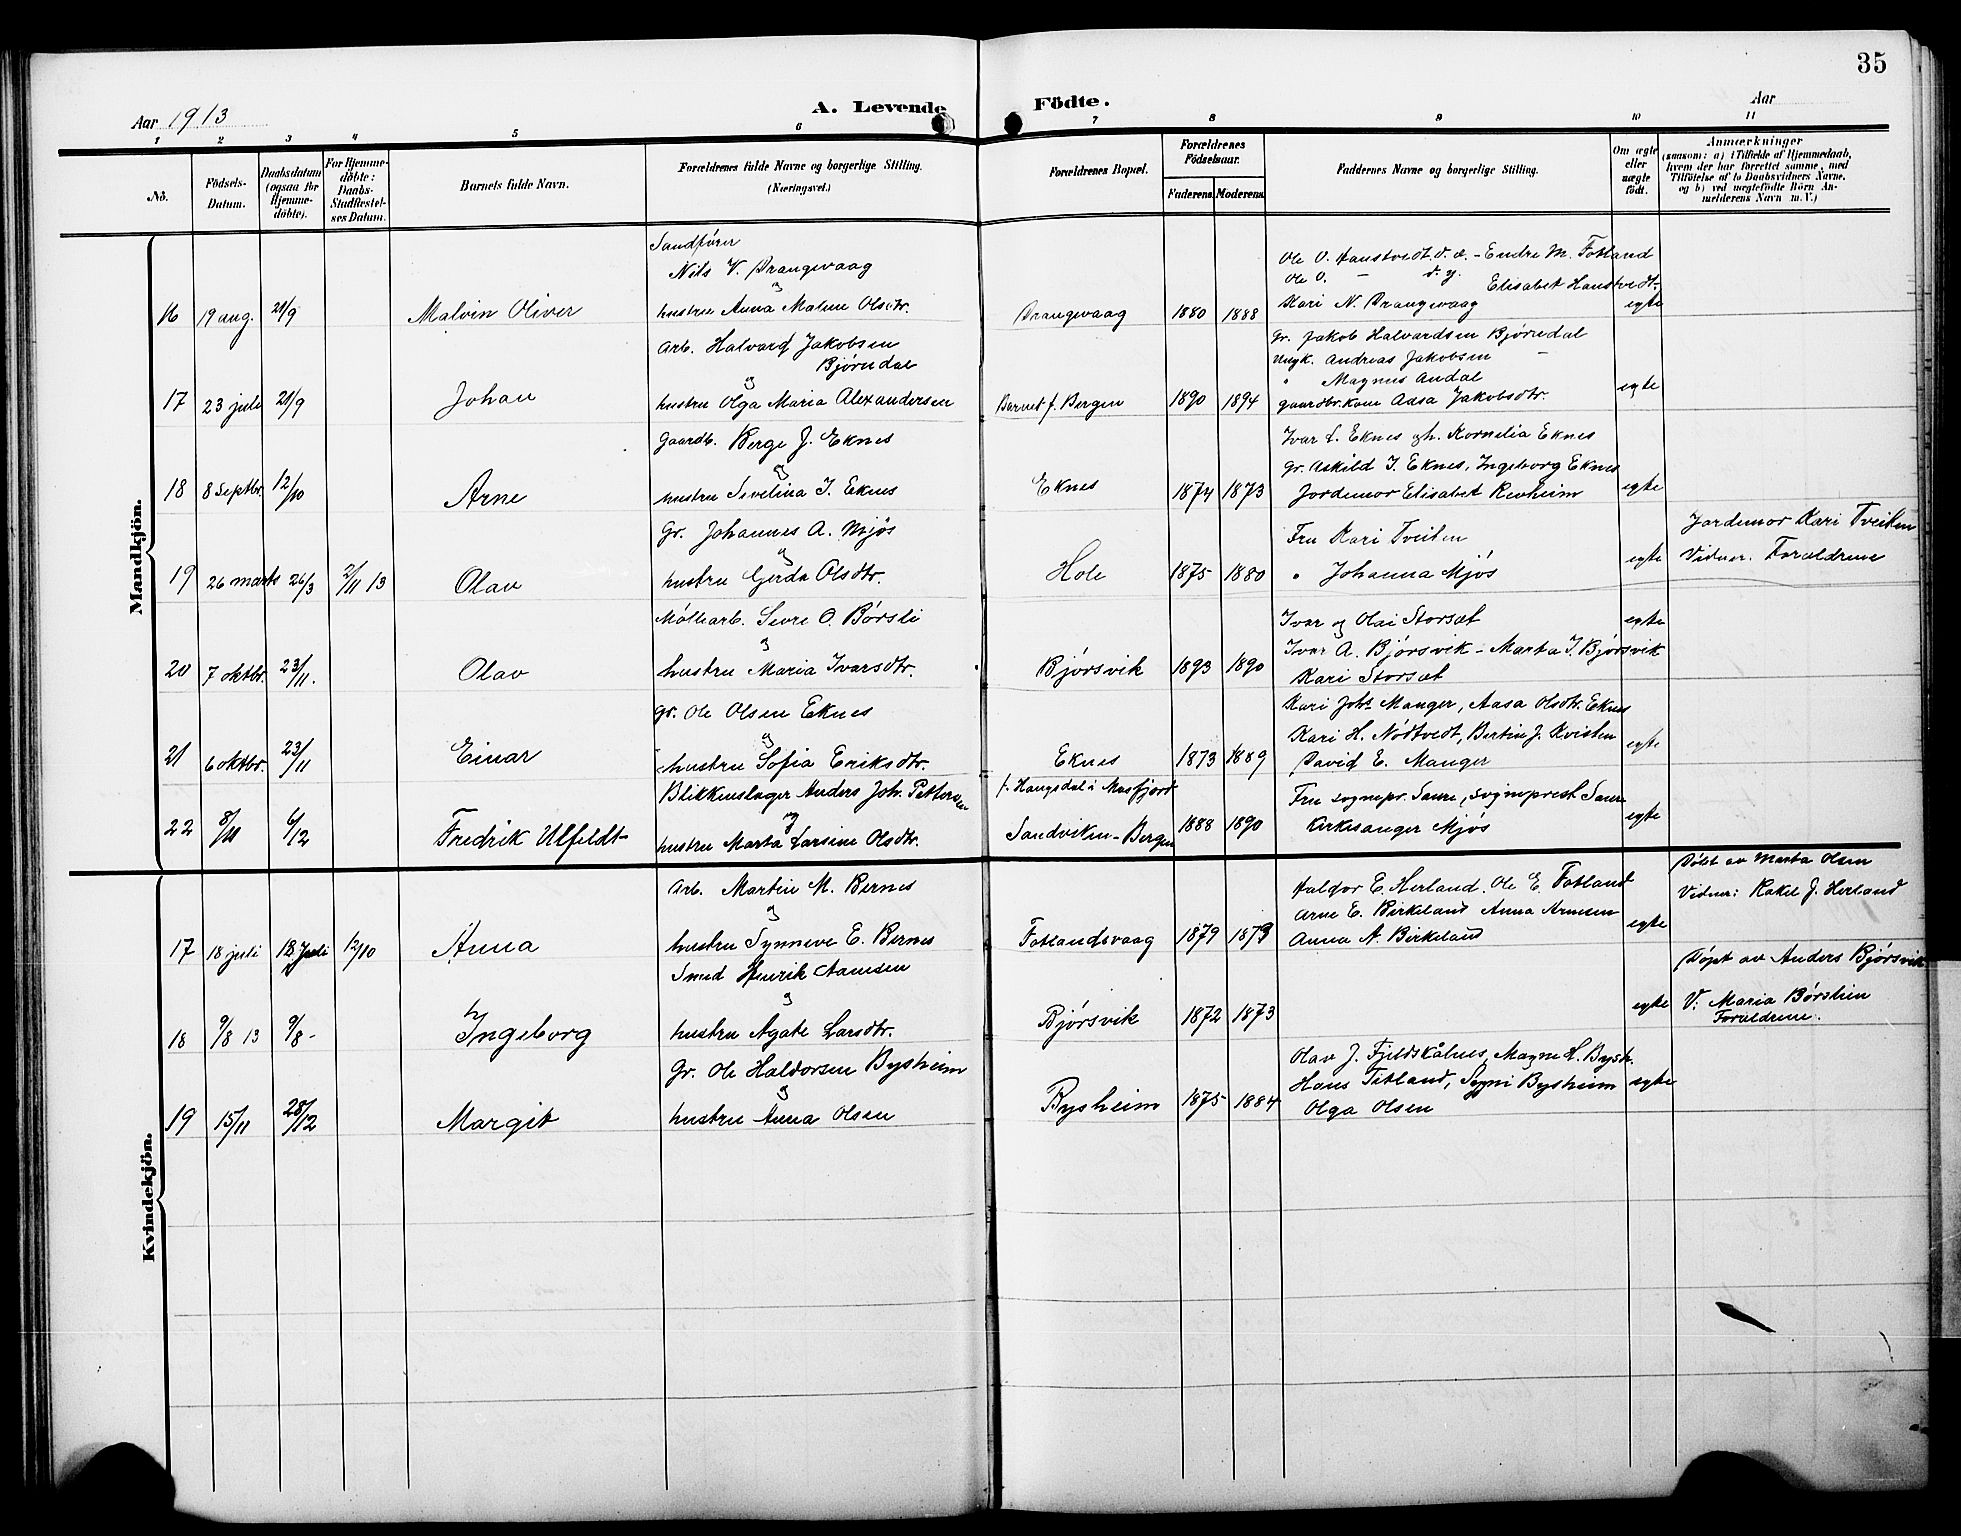 35
Aar 1913
A. Levende Födte.
Aar
1 2 3 4 5 6 7 8 9 10 11
No.
Födsels-Datum.
Daabsdatum (ogsaa for Hjemme-döbte).
For Hjemme-döbte: Daabs-Stadfæstel-ses Datum.
Barnets fulde Navn.
Forældrenes fulde Navne og borgerlige Stilling. (Næringsvei.)
Forældrenes Bopæl.
Forældrenes Födselsaar.
Faderens Moderens
Faddernes Navne og borgerlige Stilling.
Om ægte eller uægte födt.
Anmærkninger
(saasom: a) i Tilfælde af Hjemmedaab, hvem der har forrettet samme, med Tilföielse af to Daabsvidners Navne, og b) ved uægtefödte Börn An-melderens Navn m. V.)
Mandkjön.
Sandfører
Nils V. Drangevaag
&
16 19 aug. 21/9 Malvin Oliver hustru Anna Maline Olsdtr. Drangevaag 1880 1888
Ole O. Haustvedt d. æ. - Endre M. Fotland
Ole O. - d. y. Elisabet Haustvedt
Kari N. Drangevaag egte
Arb. Halvard Jakobsen
Bjørndal
&
17 23 juli 21/9 Johan hustru Olga Maria Alexandersen Barnet f. Bergen 1890 1894
Gr. Jakob Halvardsen Bjørndal
Ungk. Andreas Jakobsen -
" Magnus Andal
gaardbr.kone Aasa Jakobsdtr. egte
Gaardb. Berge J. Eknes
&
18 8 Septbr. 12/10 Arne hustru Sevelina I. Eknes Eknes 1874 1873
Ivar S. Eknes og h. Kornelia Eknes
Gr. Askild I. Eknes, Ingeborg Eknes
Jordemor Elisabet Revheim egte
Gr. Johannes A. Mjøs
&
19 26 marts 26/3 2/11 13 Olav hustru Gerda Olsdtr. Hole 1875 1880
Fru Kari Tveiten
" Johanna Mjøs egte
Jordemor Kari Tveiten
Vidner. Forældrene
Møllearb. Sevre O. Børsli
&
20 7 oktbr. 23/11. Olav hustru Maria Ivarsdtr. Bjørsvik 1893 1890
Ivar og Olai Storsæt egte
Ivar A. Bjørsvik - Marta I. Bjørsvik
Kari Storsæt
Gr. Ole Olsen Eknes
&
21 6 oktbr. 23/11 Einar hustru Sofia Eriksdtr. Eknes 1873 1889
Kari Johs Manger, Aasa Olsdtr. Eknes
Kari H. Nødtvedt, Bertin J. Kvisten
David E. Manger egte
Blikkenslager Anders Joh. Pettersen
&
22 8/11 6/12 Fredrik Ulfeldt hustru Marta Larsine Olsdtr.
f. Haugsdal i Masfjord
Sandviken - Bergen 1888 1890
Fru sognepr. Saure, sogneprest Saure
Kirkesanger Mjøs egte
Kvindekjön.
Arb. Martin M. Bernes
&
17 18 juli 18 Juli 12/10 Anna hustru Synneve E. Bernes Fotlandsvaag 1879 1873
Haldor E. Herland. Ole E. Fotland
Arne E. Birkeland Anna Arnesen
Anna A. Birkeland egte
Døbt av Marta Olsen
Vidner: Rakel J. Herland
Smed Henrik Aamsen
&
18 9/8 13 9/8 - Ingeborg hustru Agate Larsdtr. Bjørsvik 1872 1873 egte
Døpt av Anders Bjørsvik
V. Maria Børslien
Forældrene.
Gr. Ole Haldorsen Bysheim
&
19 15/11 28/12 Margit hustru Anna Olsen Bysheim 1875 1884
Olav J. Fjeldskålnes, Magne H. Bysh.
Hans Titland, Sygni Bysheim egte
Olga Olsen